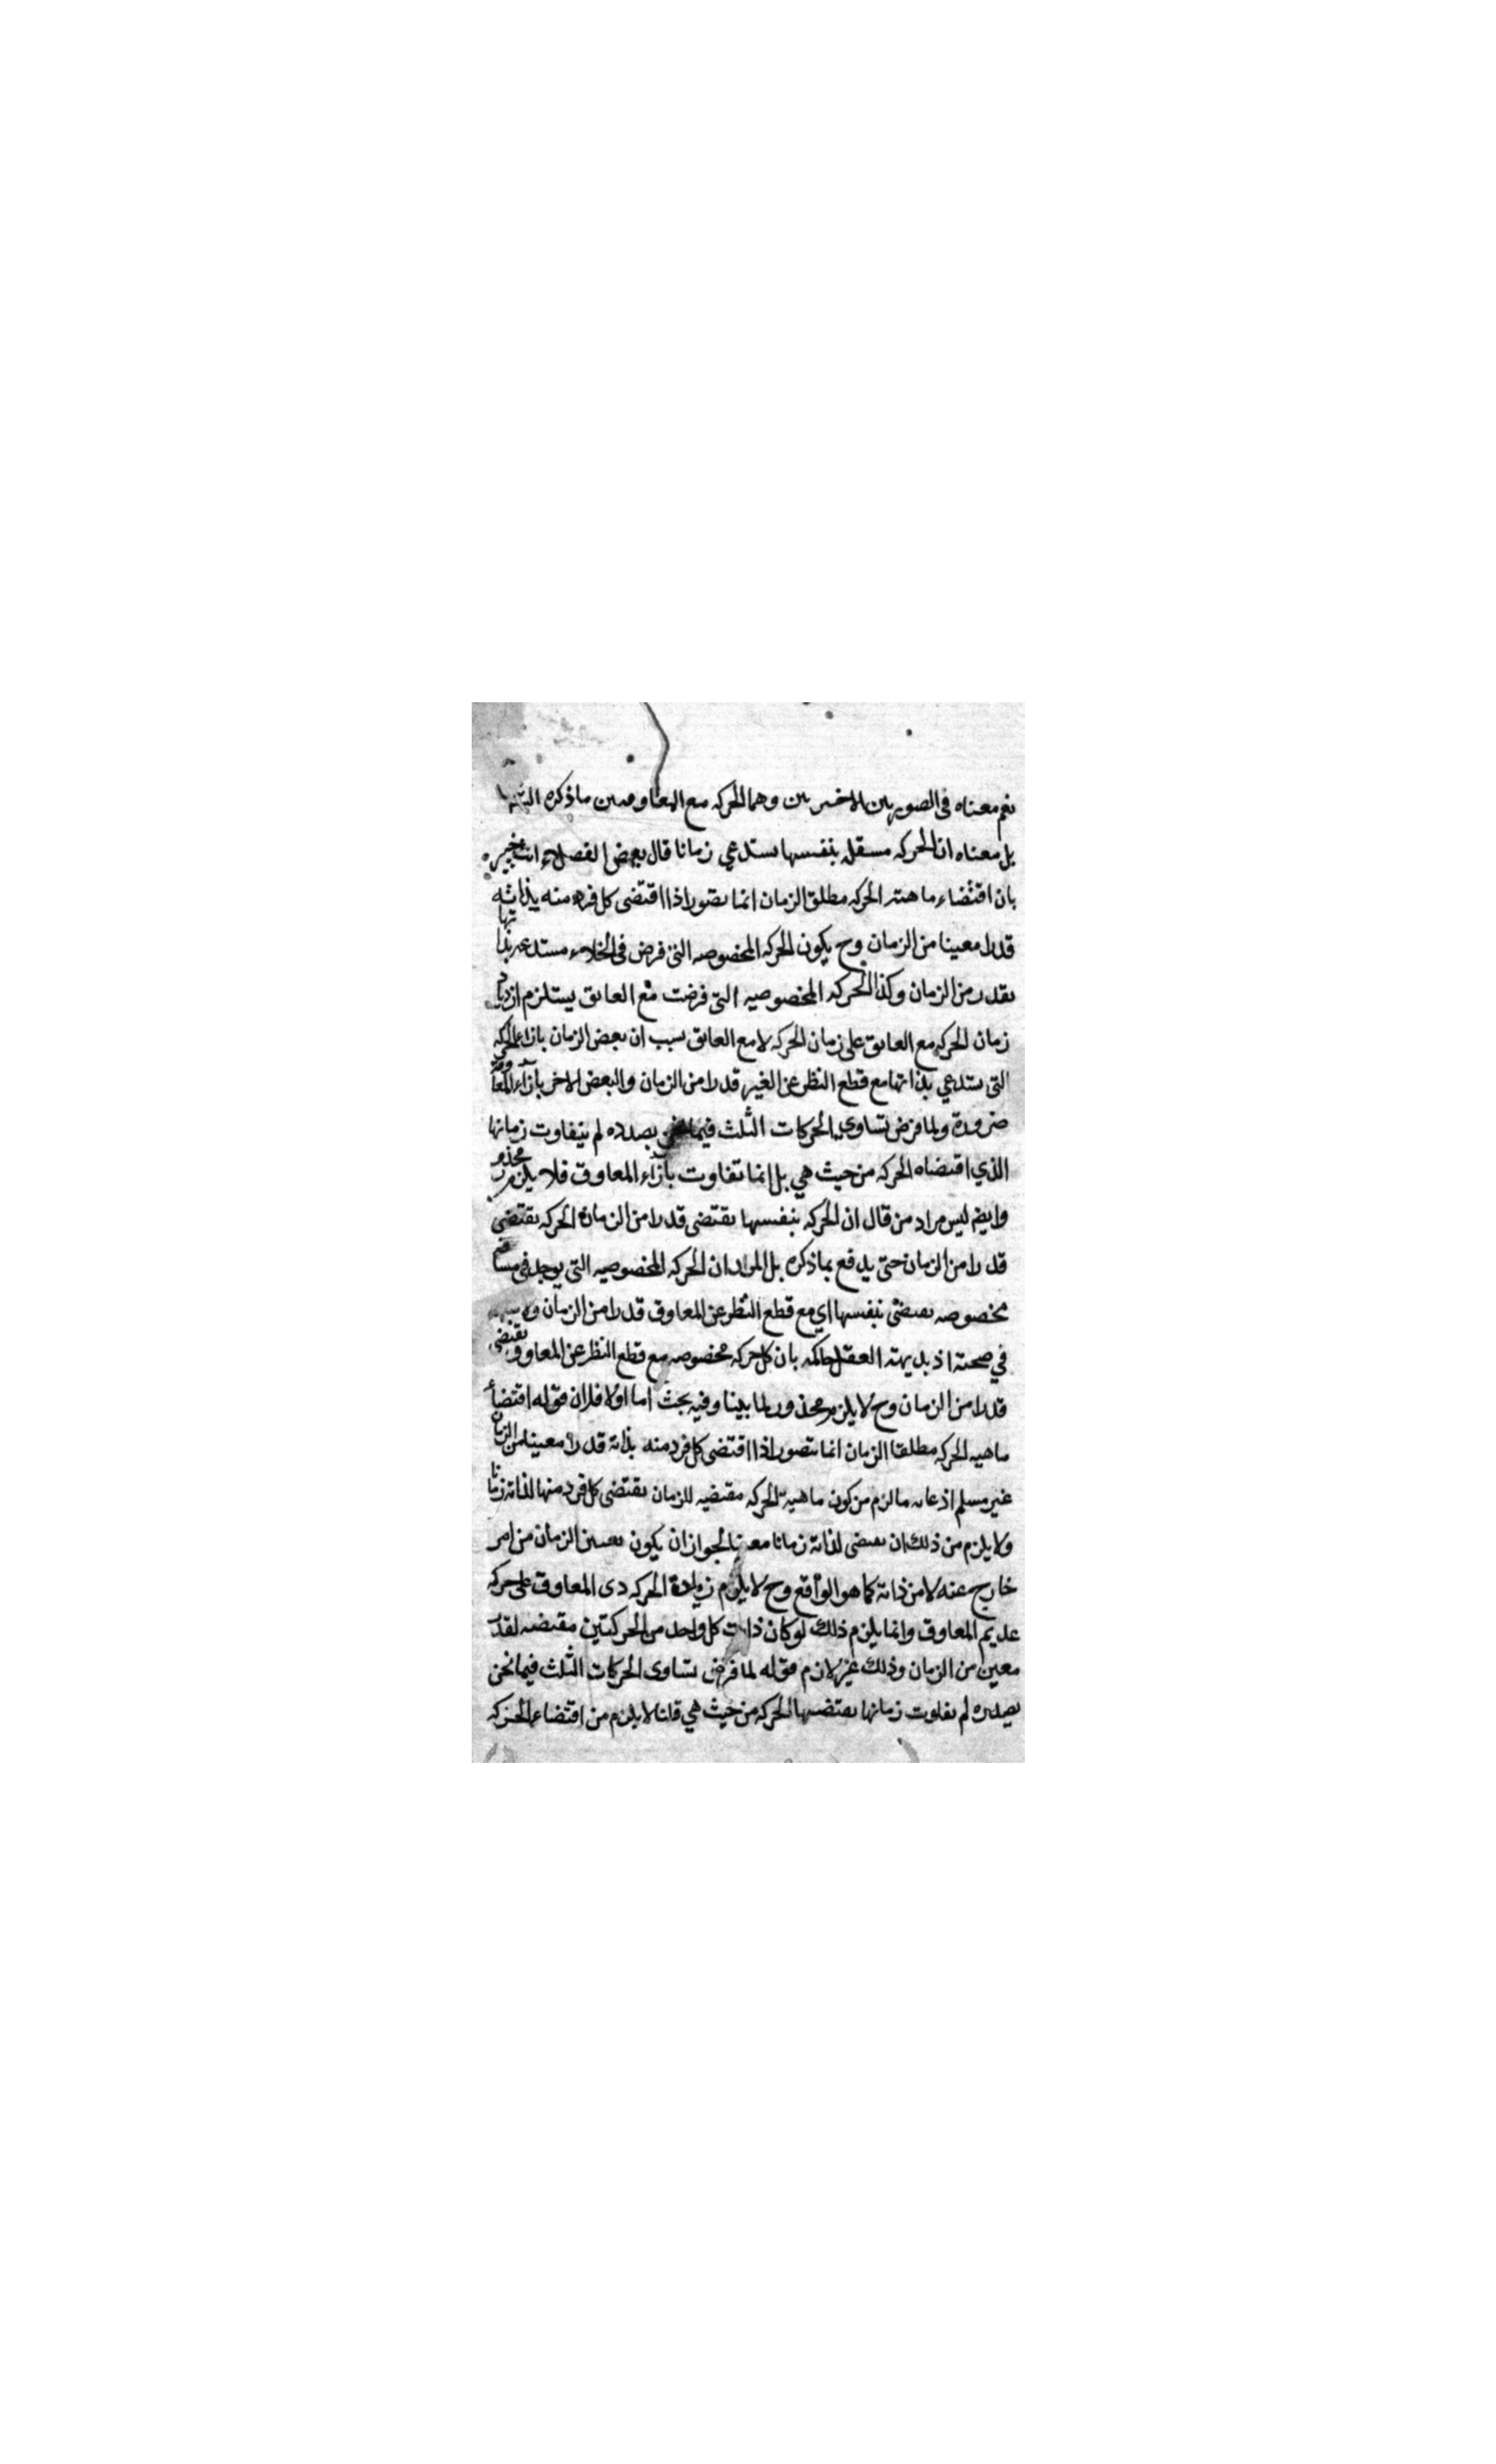 نعم معناه في الصورتين الاخيرتين وهما الحركه مع المعاوقين ما ذكره
بل معناه ان الحركه مستقله بنفسها تستدعي زمانا قال بعض الفضلاء انت خبير
بان اقتضاء ماهيته الحركه مطلق الزمان انما يتصور اذا اقتضى كل فرد منه بذاته
قدرا معينا من الزمان وح يكون الحركه المخصوصه التي فرض في الخلاء مستدعيه بذاتها
بقدر من الزمان وكذا الحركه المخصوصيه التي فرضت مع العايق يستلزم ازدياد
زمان الحركه مع العايق على زمان الحركه لا مع العايق بسبب ان بعض الزمان بازاء الحركه
التي تستدعي بذاتها مع قطع النظر عن الغير قدرا من الزمان والبعض الاخر بازاء المعاوقه
ضرورة ولما فرض تساوي الحركات الثلث فيما نحن بصدده لم يتفاوت زمانها
الذي اقتضاه الحركه من حيث هي بل انما تفاوت بازاء المعاوق فلا يلزم محذور
وايضم ليس مراد من قال ان الحركه بنفسها تقتضى قدرا من الزمان الحركه تقتضى
قدرا من الزمان حتى يدفع بما ذكره بل المراد ان الحركه المخصوصيه التي يوجد في مسافه
مخصوصه تقتضى بنفسها اي مع قطع النظر عن المعاوق قدرا من الزمان
في صحته اذ بديهته العقل حاكمه بان كل حركه مخصوصه مع قطع النظر عن المعاوق يقتضى
قدرا من الزمان وح لا يلزم محذور لما بينا وفيه بحث اما اولا فلان قوله اقتضاء
ماهيه الحركه مطلقا الزمان انما يتصور اذا اقتضى كل فرد منه بذاته قدرا معينا من الزمان
غير مسلم اذ غايه ما لزم من كون ماهية الحركه مقتضيه للزمان يقتضى كل فرد منها لذاته زمانا
ولا يلزم من ذلك ان يقتضى لذاته زمانا معينا لجواز ان يكون تعيين الزمان من امر
خارج عنه لا من ذاته كما هو الواقع وح لا يلزم زيادة الحركه ذى المعاوق على حركه
عديم المعاوق وانما يلزم ذلك لو كان ذات كل واحد من الحركتين مقتضيه لقدر
معين من الزمان وذلك غير لازم قوله لما فرض تساوى الحركات الثلث فيما نحن
بصدده لم يتفاوت زمانها يقتضيها الحركه من حيث هي قلنا لا يلزم من اقتضاء الحركه